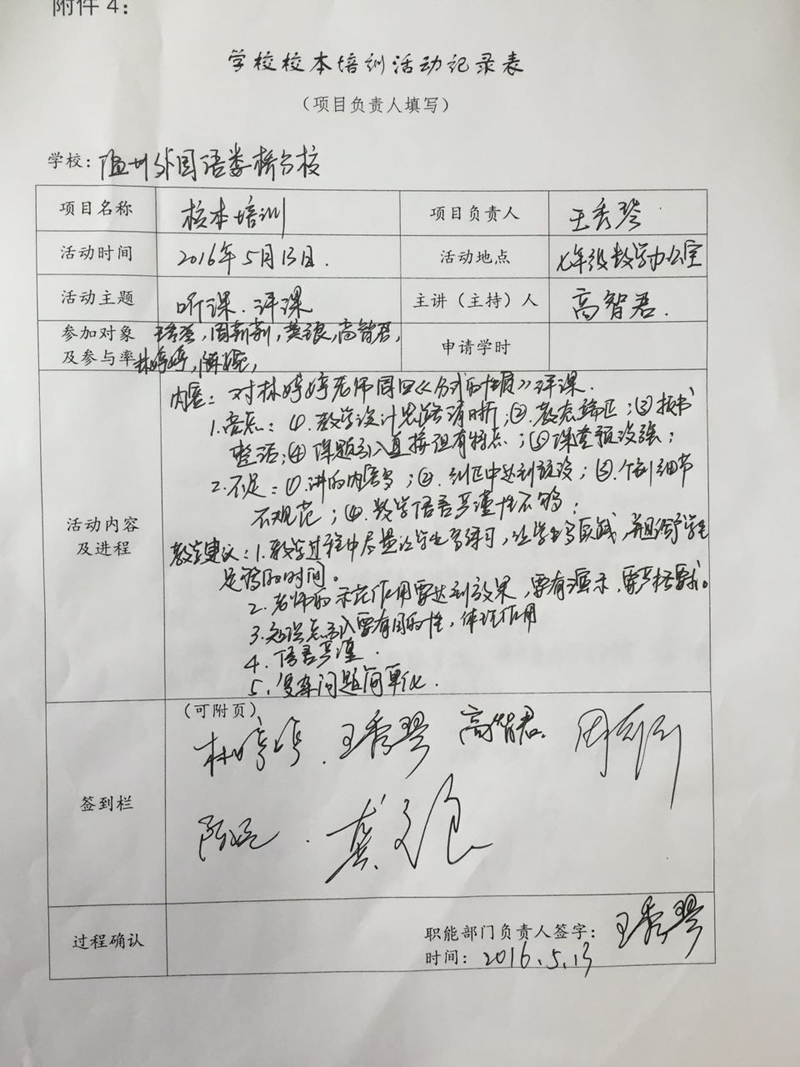 附件4:
学校校本培训活动记录表
（项目负责人填写）
学校：温州外国语娄桥分校
项目名称 校本培训 项目负责人 王秀琴
活动时间 2016年5月13日. 活动地点 七年级数学办公室
活动主题 听课.评课 主讲（主持）人 高智君.
参加对象 王秀琴,周莉莉,龚文银,高智君,
及参与率 林婷婷,陈
申请学时
内容：对林婷婷老师周四《分式的性质》评课.
1.亮点：①.教学设计思路清晰；②.教态端正；③板书
整洁；④课题引入直接但有特点；⑤课堂预设强；
2.不足：①.讲的内容多；②.到 ；③.个别细节
不规范；④.数学语言严谨性不够；
活动内容
及进程
教学建议：1.教学过程中尽量让学生多练习,让学生多 ,并且给予学生
足够的时间。
2.老师的示范作用要达到效果,要有演示,要严格要求。
3.知识点引入要有目的性,体现作用
4.语言严谨.
5.复杂问题简单化.
（可附页）
签到栏
林婷婷.王秀琴 高智君. 周莉莉
陈 .龚文银
过程确认
职能部门负责人签字：王秀琴
时间：2016.5.13